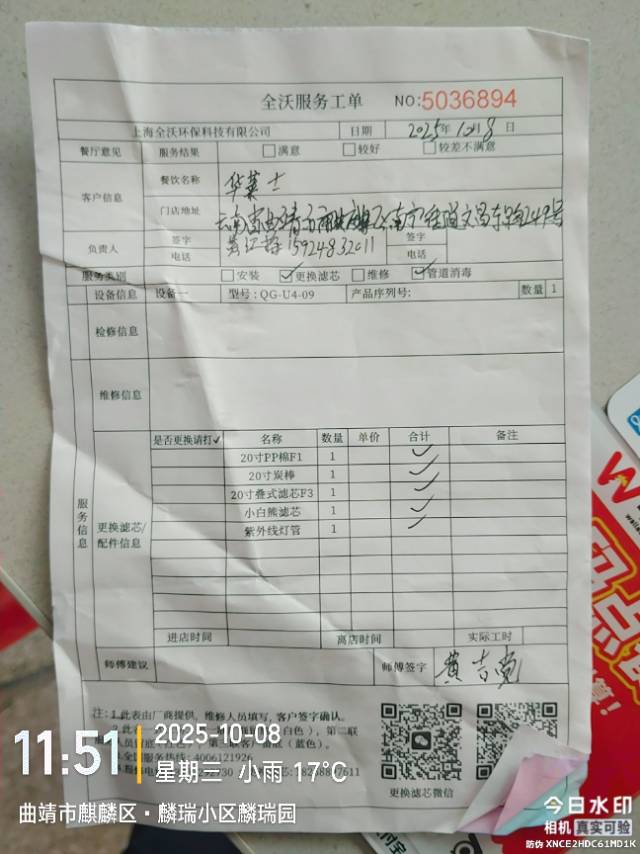 全沃服务工单 NO:5036894
上海全沃环保科技有限公司 日期 2025年10月8日
餐厅意见 服务结果 满意 较好 较差不满意
客户信息 餐饮名称 华莱士
门店地址 云南省曲靖市麒麟区南宁街道文昌东路249号
负责人 签字 签字
电话 15924832011 电话
服务类别 安装 ✓更换滤芯 维修 ✓管道消毒
设备信息 设备一 型号:QG-U4-09 产品序列号: 数量 1
检修信息
维修信息
服务信息
更换滤芯/配件信息
是否更换请打✓ 名称 数量 单价 合计 备注
20寸PP棉F1 1 ✓
20寸炭棒 1 ✓
20寸叠式滤芯F3 1 ✓
小白熊滤芯 1 ✓
紫外线灯管 1 ✓
进店时间 离店时间 实际工时
师傅建议 师傅签字 黄吉宽
注:1.此表由厂商提供,维修人员填写,客户签字确认。
白色),第二联
(蓝色)。
全国服务热线:4006121926
更换滤芯微信
11:51
2025-10-08
星期三 小雨 17℃
曲靖市麒麟区·麟瑞小区麟瑞园
今日水印
相机 真实可验
防伪 XNCE2HDC61MD1K